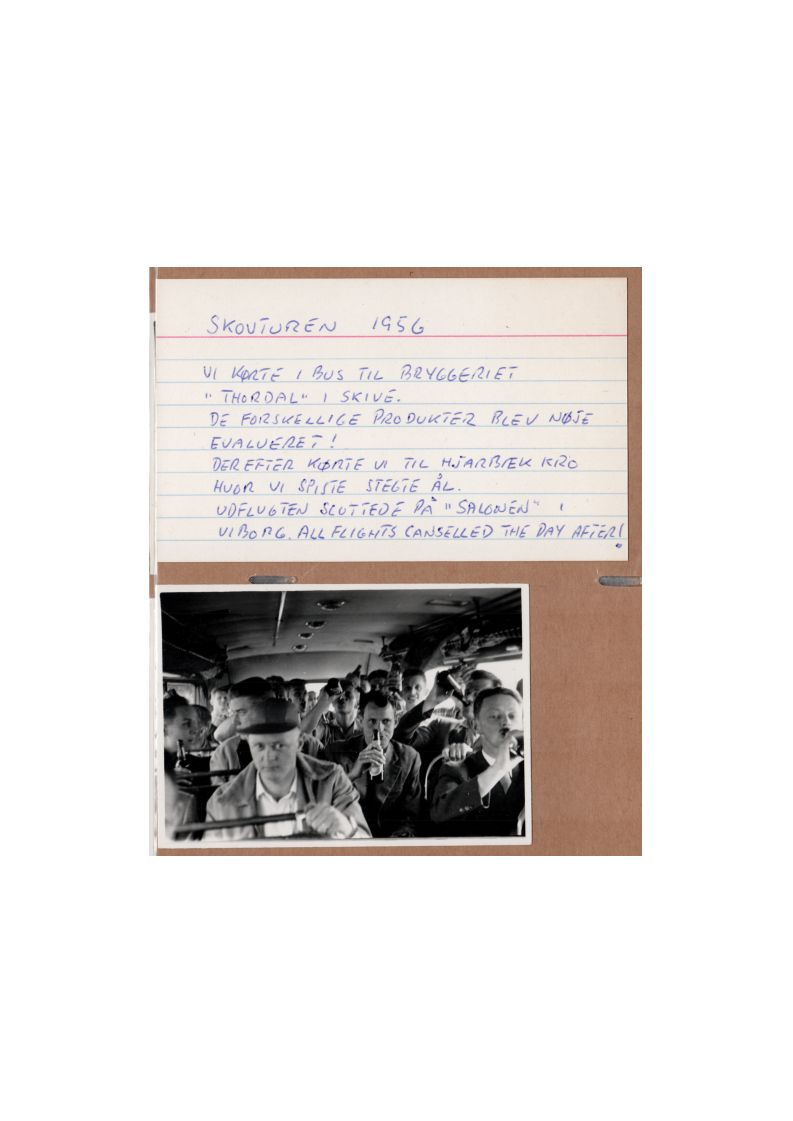 SKOVTUREN 1956
VI KØRTE I BUS TIL BRYGGERIET
"THORDAL" I SKIVE.
DE FORSKELLIGE PRODUKTER BLEV NØJE
EVALUERET!
DEREFTER KØRTE VI TIL HJARBÆK KRO
HVOR VI SPISTE STEGTE ÅL.
UDFLUGTEN SLUTTEDE PÅ "SALONEN" I
VIBORG. ALL FLIGHTS CANSELLED THE DAY AFTER!